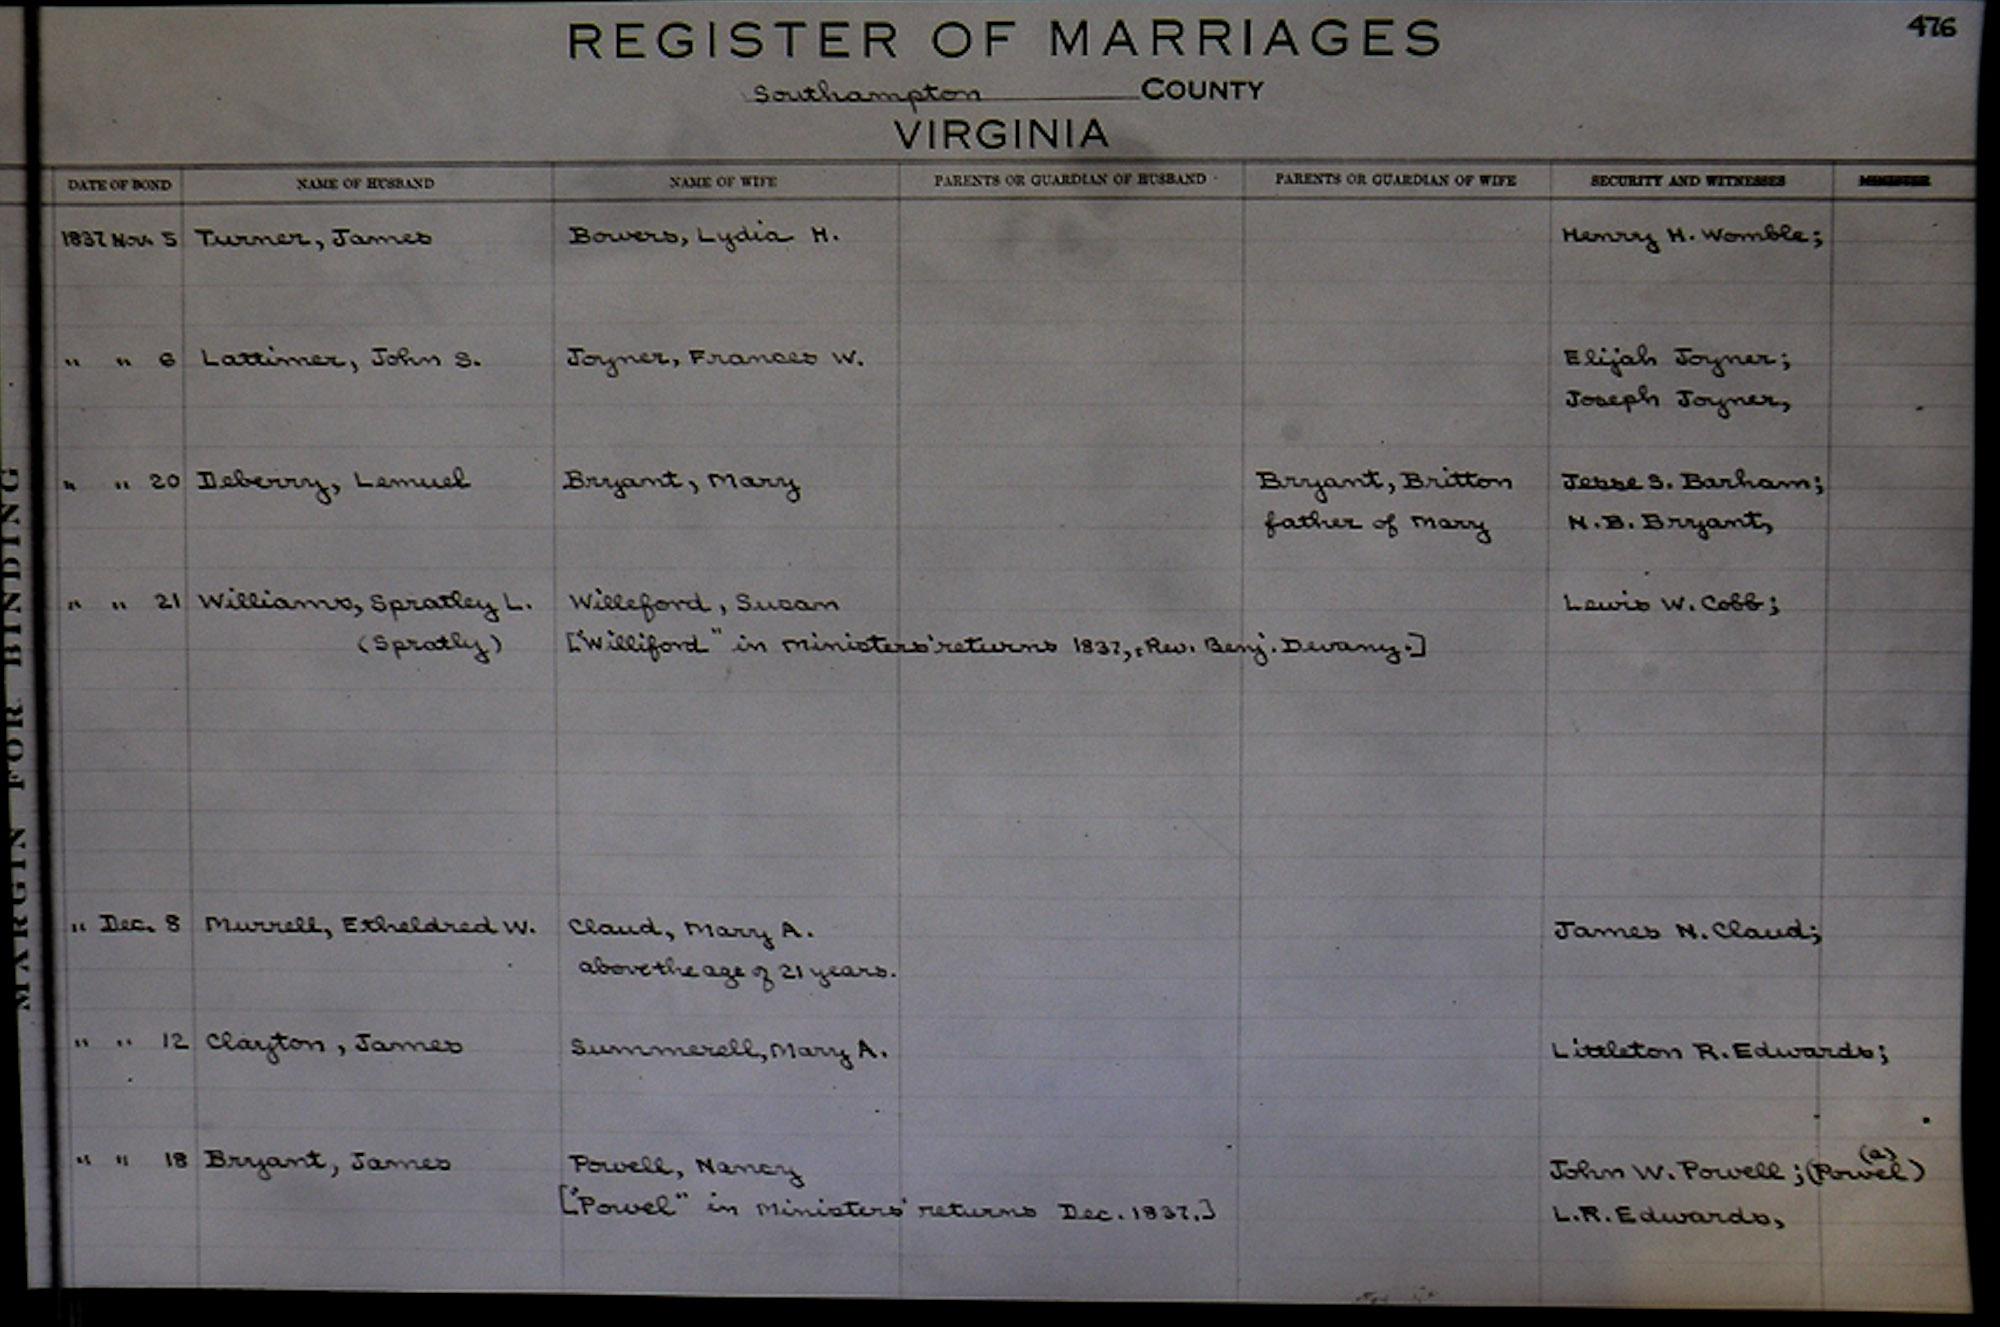 REGISTER OF MARRIAGES
476
Southampton COUNTY
VIRGINIA
DATE OF BOND NAME OF HUSBAND NAME OF WIFE PARENTS OR GUARDIAN OF HUSBAND PARENTS OR GUARDIAN OF WIFE SECURITY AND WITNESSES MINISTER
1837 Nov. 5 Turner, James Bowers, Lydia H. Henry H. Womble;
" " 6 Lattimer, John S. Joyner, Frances W. Elijah Joyner;
Joseph Joyner,
" " 20 Deberry, Lemuel Bryant, Mary Bryant, Britton Jesse S. Barham;
father of Mary N.B. Bryant,
" " 21 Williams, Spratley L. Willeford, Susan Lewis W. Cobb;
(Spratly) ["Williford" in Ministers' returns 1837, Rev. Benj. Devany.]
" Dec. 8 Murrell, Etheldred W. Claud, Mary A. James N. Claud;
above the age of 21 years.
" " 12 Clayton, James Summerell, Mary A. Littleton R. Edwards;
" " 18 Bryant, James Powell, Nancy John W. Powell; (Powel) (a)
["Powel" in Ministers' returns Dec. 1837.] L.R. Edwards,
MARGIN FOR BINDING